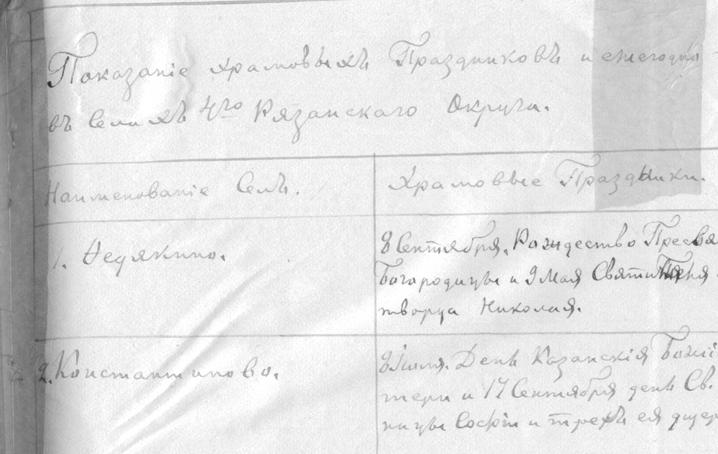 Показаніе храмовыхъ Праздниковъ и ежегодн
въ Селахъ 4го Рязанскаго Округа.
Наименованіе Селъ.
Храмовые Праздники.
1. Федякино.
8 Сентября. Рождество Пресвя
Богородицы и 9 Мая Святителя
творца Николая.
2. Константиново.
8 Июля. День Казанскія Божіе
тери и 17 Сентября день Св.
ницы Софіи и трехъ ея дщер